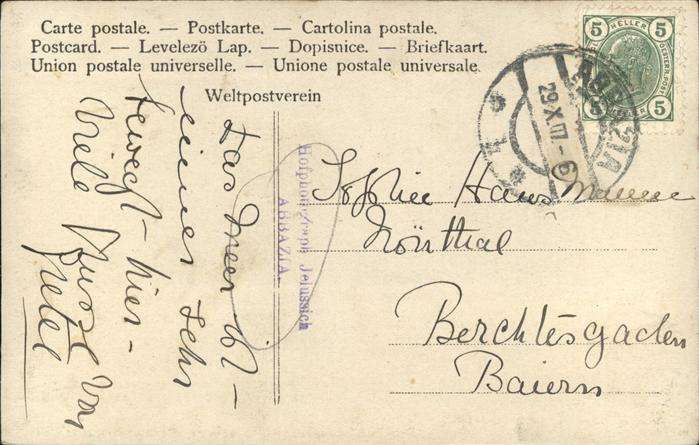 Carte postale. — Postkarte. — Cartolina postale.
Postcard. — Levelező Lap. — Dopisnice. — Briefkaart.
Union postale universelle. — Unione postale universale
Weltpostverein
5 HELLER 5
5 5
ABBAZIA
29.X.07.-6
1
Hofphotograph Jelussich
ABBAZIA.
Das Meer ist
immer sehr
bewegt - hier -
Viele Küsse von
Berchtesgaden
Baiern